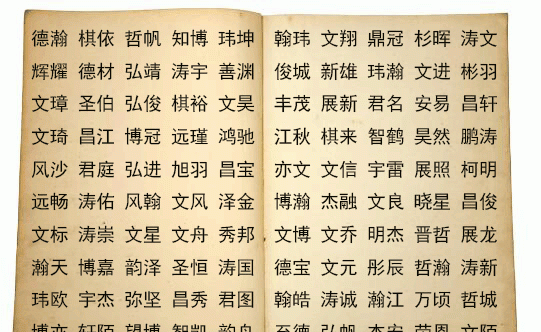 德瀚 棋依 哲帆 知博 玮坤 翰玮 文翔 鼎冠 杉晖 涛文
辉耀 德材 弘靖 涛宇 善渊 俊城 新雄 玮瀚 文进 彬羽
文璋 圣伯 弘俊 棋裕 文昊 丰茂 展新 君名 安易 昌轩
文琦 昌江 博冠 远瑾 鸿驰 江秋 棋来 智鹤 昊然 鹏涛
风沙 君庭 弘进 旭羽 昌宝 亦文 文信 宇雷 展照 柯明
远畅 涛佑 风翰 文风 泽金 博瀚 杰融 文良 晓星 昌俊
文标 涛崇 文星 文舟 秀邦 文博 文乔 明杰 晋哲 展龙
瀚天 博嘉 韵泽 圣恒 涛国 德宝 文元 彤辰 哲瀚 涛新
玮欧 宇杰 弥坚 昌秀 君图 翰皓 涛诚 瀚江 万顷 哲城
博亦 轩陌 望博 智凯 韵舟 至德 弘帆 本安 荣恩 文陌